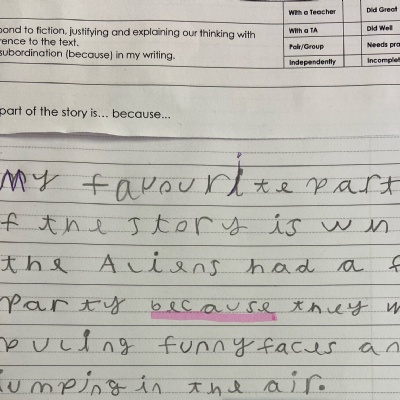 With a Teacher Did Great
pond to fiction, justifying and explaining our thinking with
With a TA Did Well
rence to the text.
subordination (because) in my writing.
Pair/Group Needs pra
Independently Incomplet
part of the story is... because...
My favourite part
f the story is wn
the Aliens had a f
party because they w
pucing funny faces an
jumping in the air.